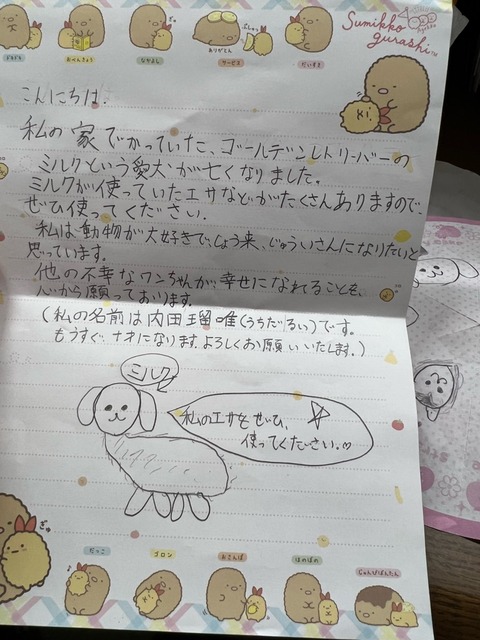 Sumikko
gurashi™
おべんきょう
なかよし
ありがとん
サービス
だいすき
こんにちは.
私の家でかっていた、ゴールデンレトリーバーの
ミルクという愛犬が亡くなりました。
ミルクが使っていたエサなどがたくさんありますので、
ぜひ使ってください。
私は動物が大好きで、しょう来、じゅういさんになりたいと
思っています。
他の不幸なワンちゃんが幸せになれることを、
心から願っております。
(私の名前は内田瑠唯(うちだるい)です。
もうすぐ十才になります。よろしくお願いいたします。)
ミルク
私のエサをぜひ、
使ってください。♡
ぎゅ
だっこ
ゴロン
おさんぽ
ほのぼの
じゅんびばんたん